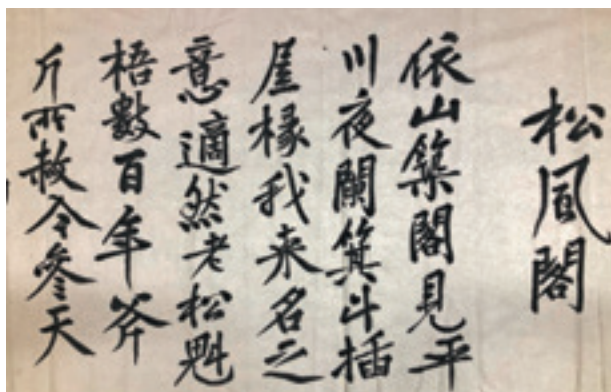 松風閣
依山築閣見平
川夜闌箕斗插
屋椽我来名之
意適然老松魁
梧數百年斧
斤所赦令參天